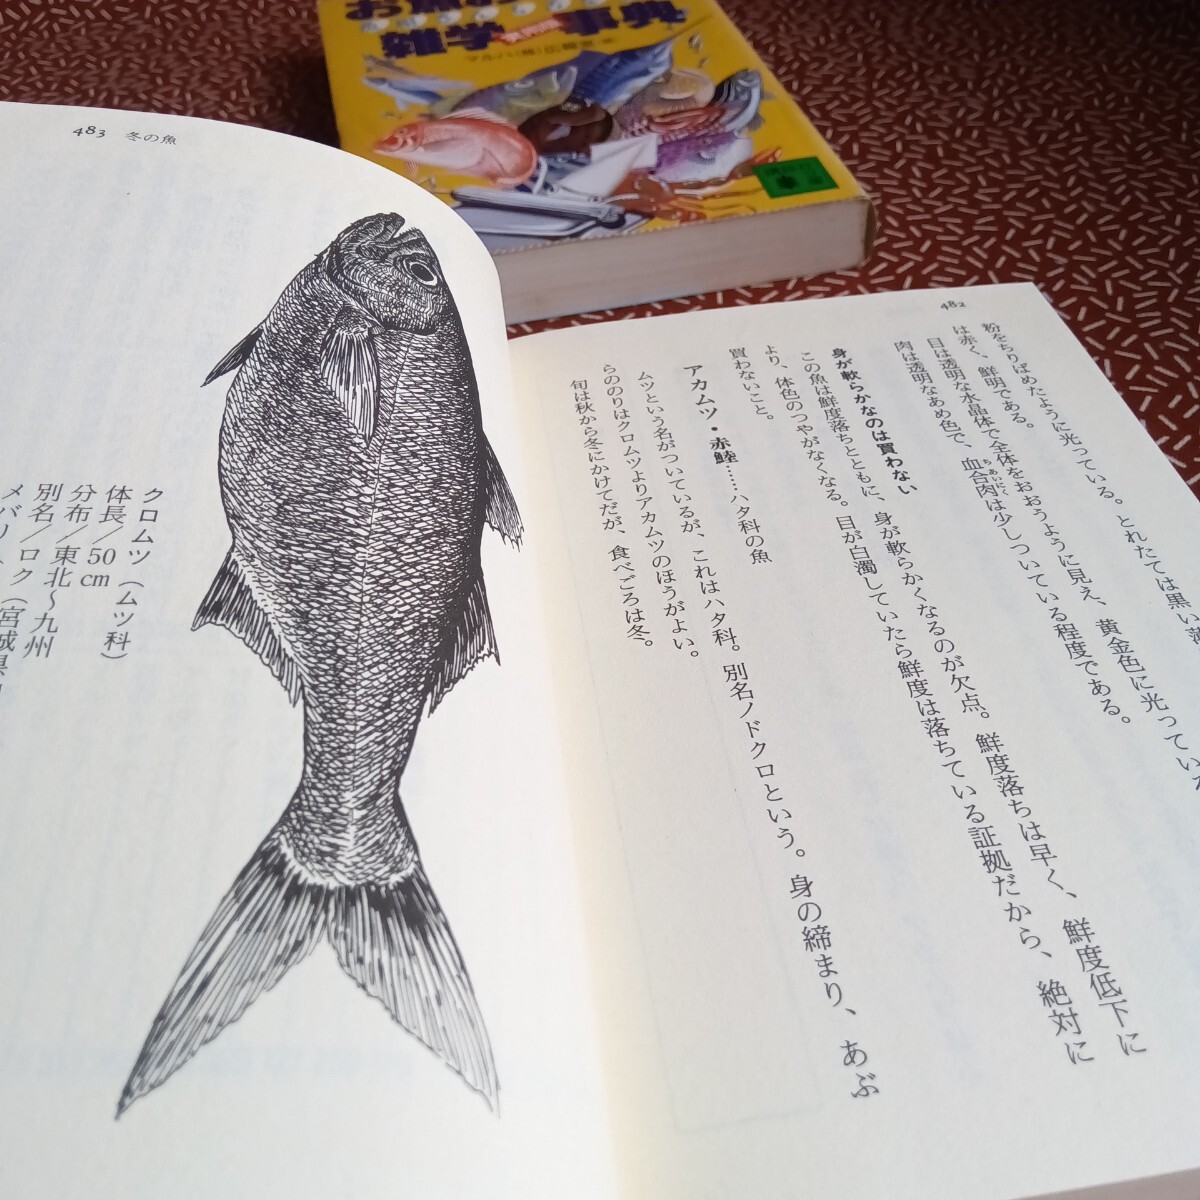 482
粉をちりばめたように光っている。とれたては黒い
は赤く、鮮明である。
目は透明な水晶体で全体をおおうように見え、黄金色に光ってい
肉は透明なあめ色で、血合肉は少しついている程度である。
ちあいにく
身が軟らかなのは買わない
この魚は鮮度落ちとともに、身が軟らかくなるのが欠点。鮮度落ちは早く、鮮度低下に
より、体色のつやがなくなる。目が白濁していたら鮮度は落ちている証拠だから、絶対に
買わないこと。
アカムツ・赤鯥……ハタ科の魚
ムツという名がついているが、これはハタ科。別名ノドクロという。身の締まり、あぶ
らののりはクロムツよりアカムツのほうがよい。
旬は秋から冬にかけてだが、食べごろは冬。
483 冬の魚
クロムツ(ムツ科)
体長/50cm
分布/東北〜九州
別名/ロク(宮城県
メバリ
雑学事典
マルハ(株)広報室